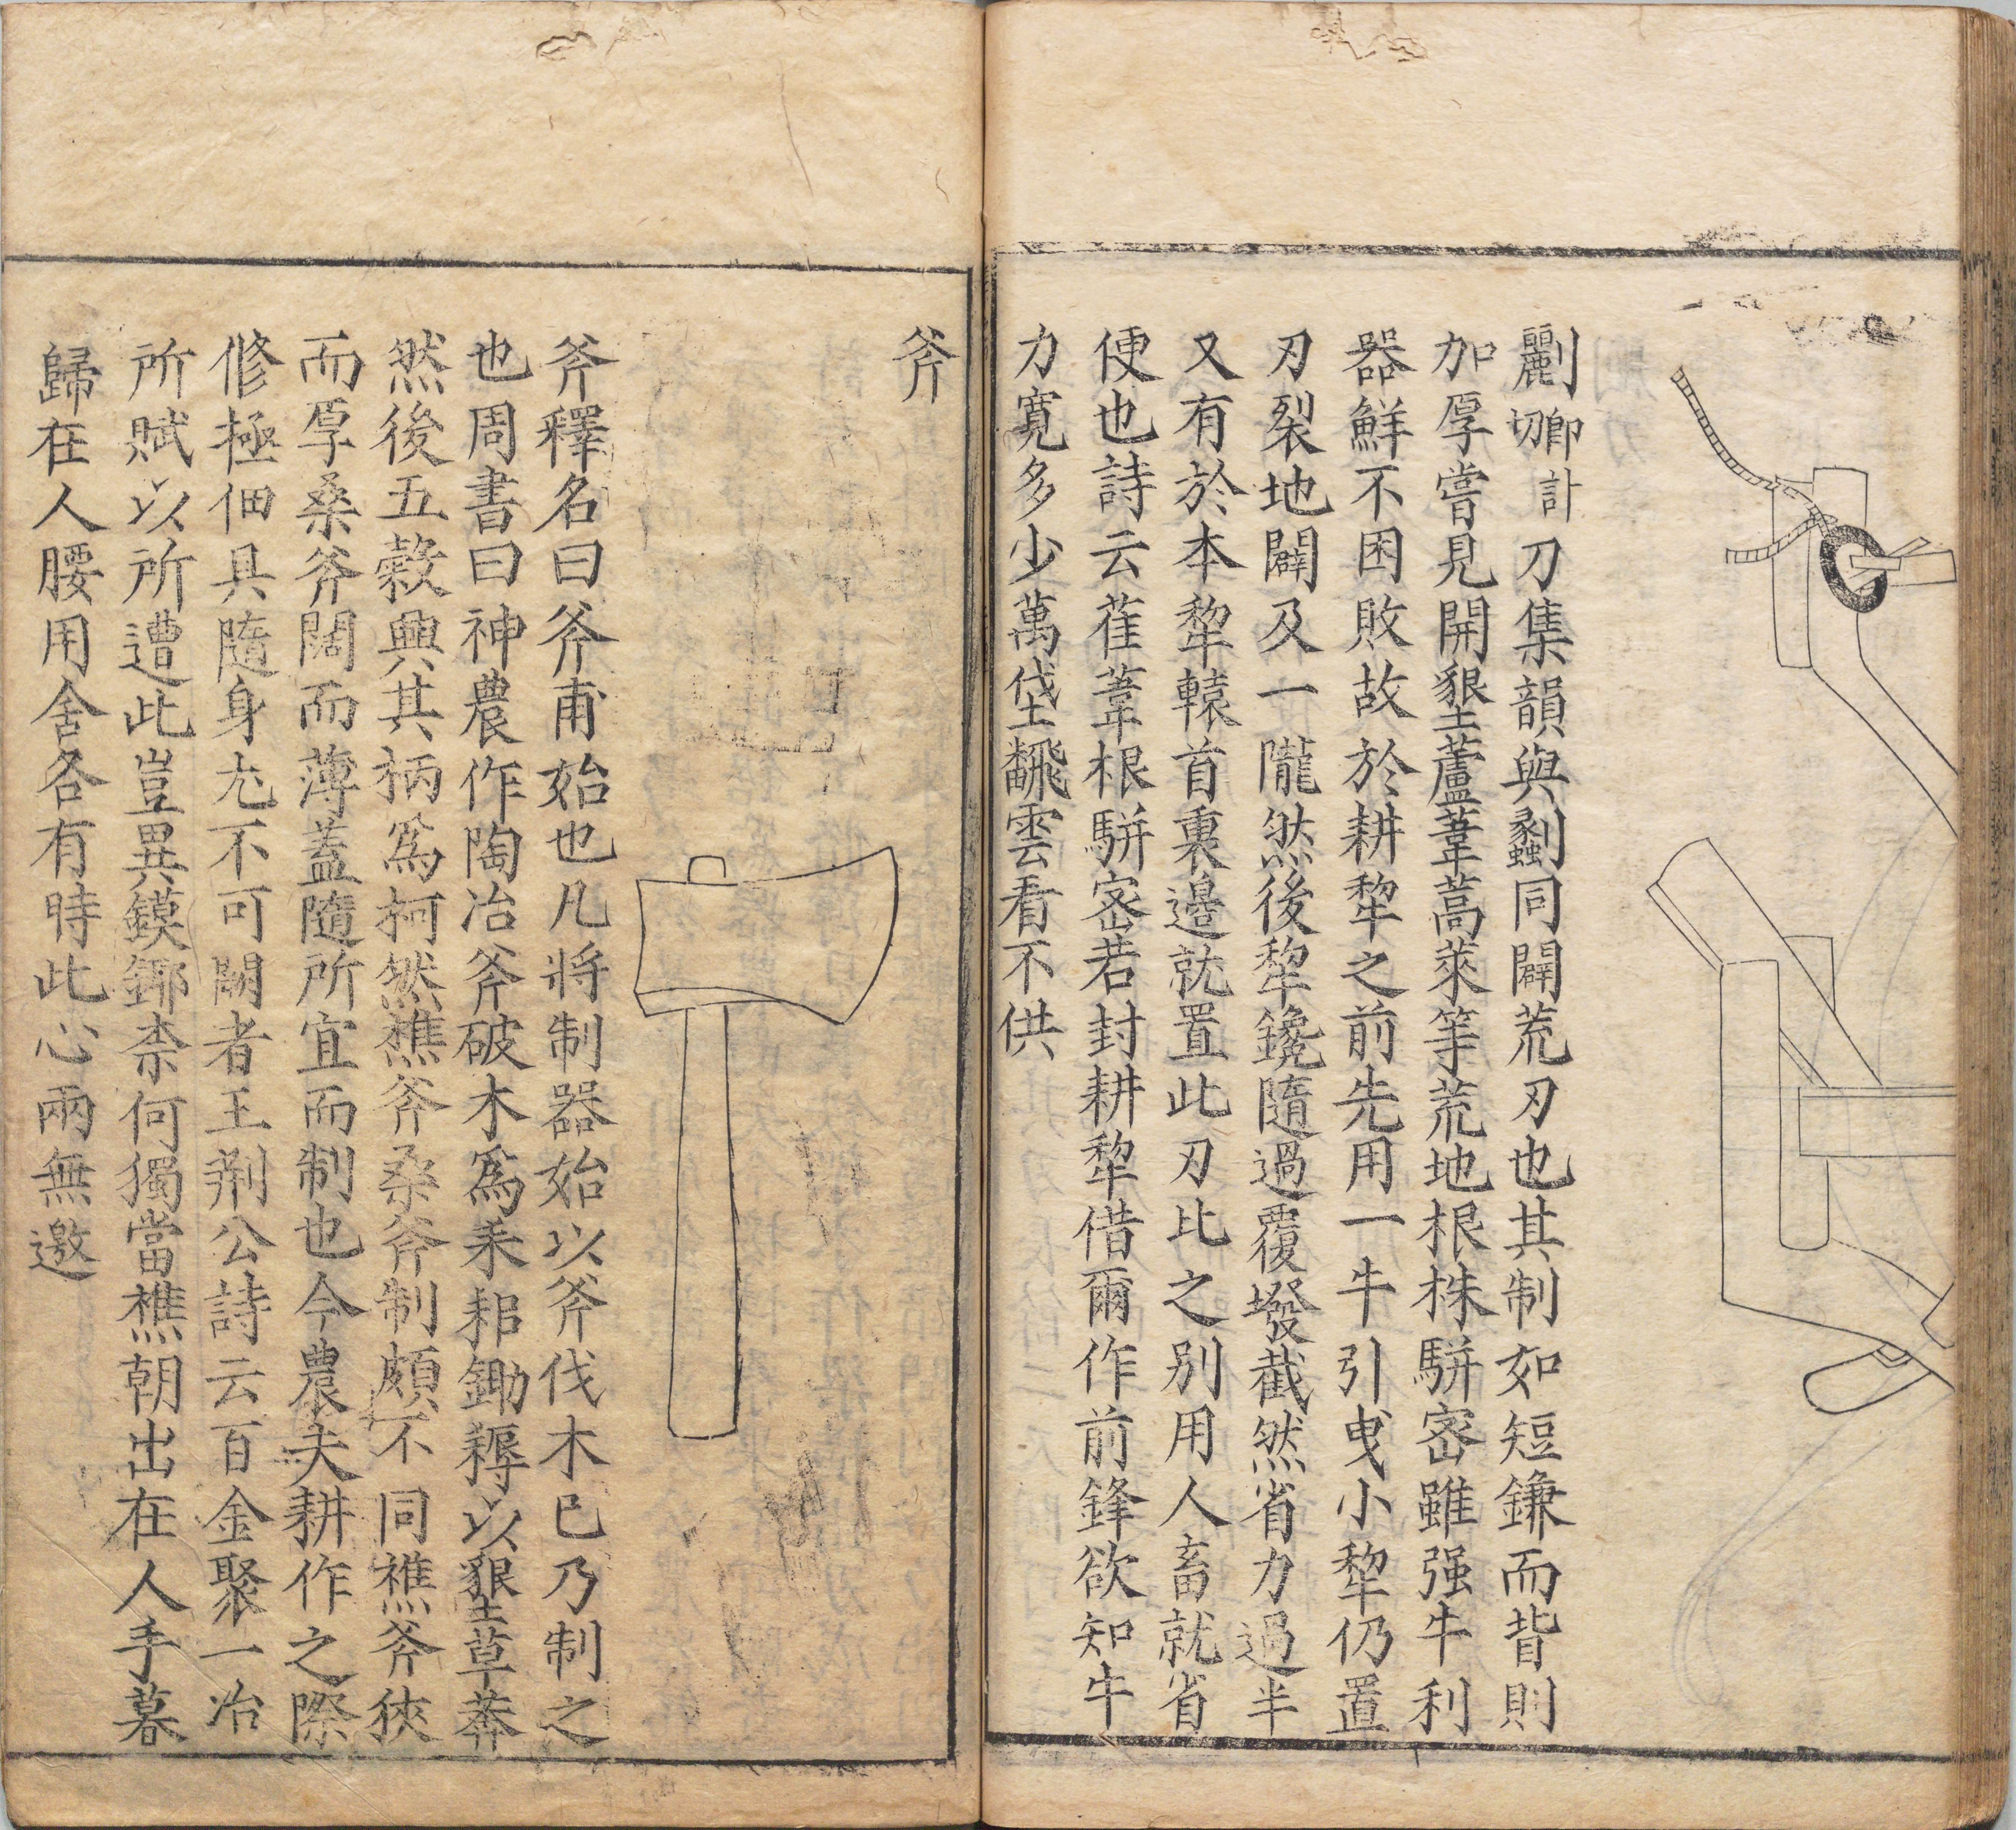 劚卿計切刀集韻與劙同闢荒刃也其制如短鎌而背則
加厚嘗見開墾蘆葦蒿萊等荒地根株駢密雖强牛利
器鮮不困敗故於耕犂之前先用一牛引曵小犂仍置
刃裂地闢及一隴然後犂鑱隨過覆墢截然省力過半
又有於本犂轅首裏邊就置此刃比之别用人畜就省
便也詩云萑葦根駢密若封耕犂借爾作前鋒欲知牛
力寛多少萬垡飜雲看不供
斧
斧釋名曰斧甫始也凡將制器始以斧伐木已乃制之
也周書曰神農作陶冶斧破木爲耒耜鋤耨以墾草莽
然後五穀興其柄爲柯然樵斧桑斧制頗不同樵斧狹
而厚桑斧闊而薄蓋隨所宜而制也今農夫耕作之際
修極佃具隨身尤不可闕者王荆公詩云百金聚一冶
所賦以所遭此豈異鏌鎁柰何獨當樵朝出在人手暮
歸在人腰用舍各有時此心兩無邀